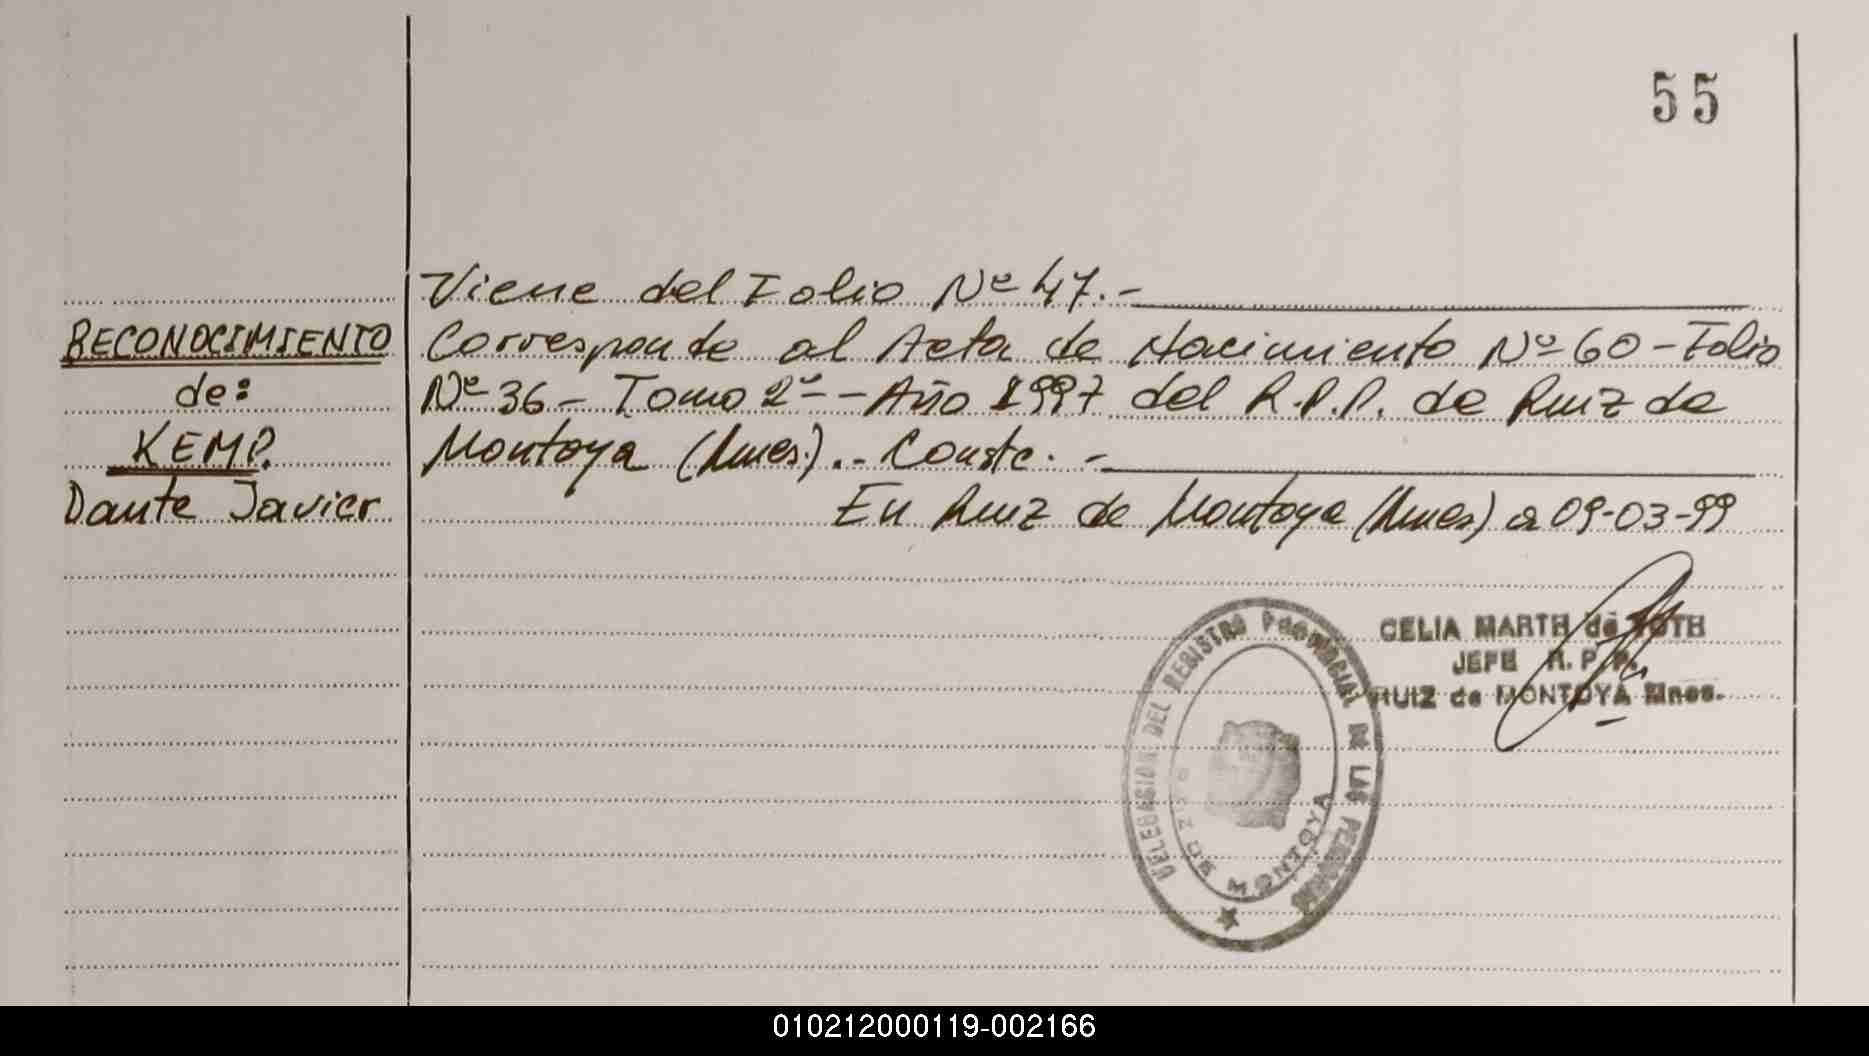 55
Viene del Folio Nº 47.-
RECONOCIMIENTO
de:
KEMP.
Dante Javier
Corresponde al Acta de Nacimiento Nº 60 - Folio
Nº 36 - Tomo 2º - Año 1997 del R.P.P. de Ruiz de
Montoya (Mnes.).- Conste. -
En Ruiz de Montoya (Mnes) a 09-03-99
CELIA MARTH de TOTH
JEFE R. P. P.
RUIZ de MONTOYA Mnes.
DELEGACION DEL REGISTRO PROVINCIAL DE LAS PERSONAS
RUIZ DE MONTOYA
010212000119-002166